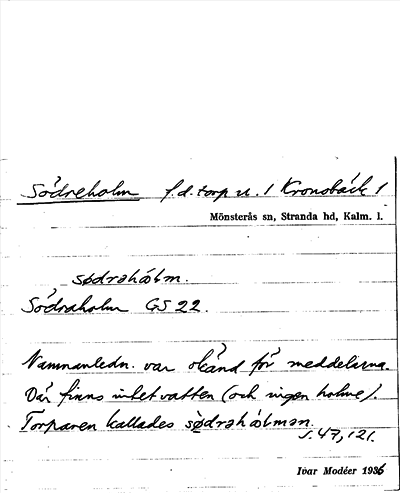 Södreholm f.d. torp u. 1 Kronobäck 1
Mönsterås sn, Stranda hd, Kalm. l.
sødrəhål̀m.
Södraholm GS 22.
Namnanledn. var okänd för meddelarna.
Där finns intet vatten (och ingen holme).
Torparen kallades sø̀drəhål̀mən.
s. 47, 121.
Ivar Modéer 1936